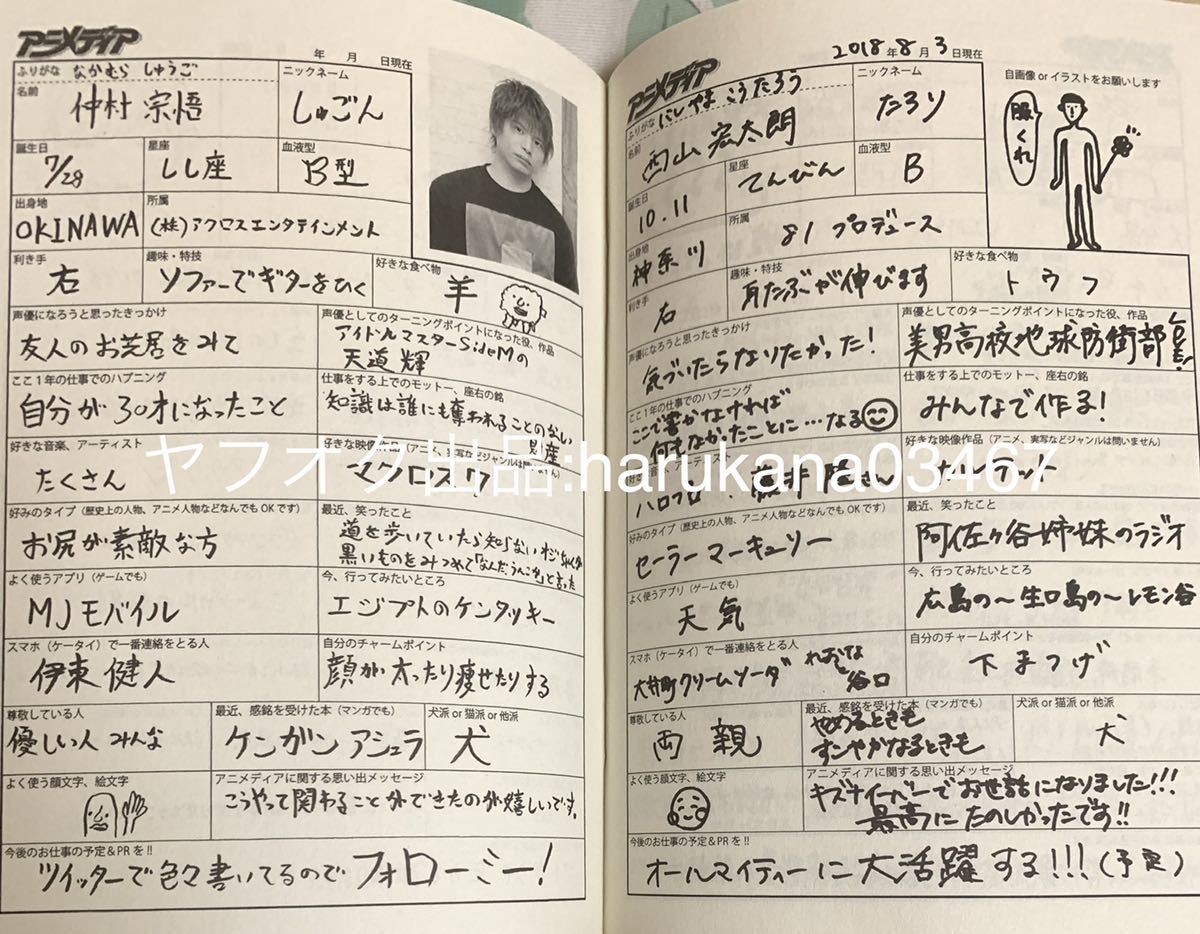 アニメディア
年 月 日現在
ふりがな なかむら しゅうご
名前
仲村 宗悟
ニックネーム
しゅごん
誕生日
7/28
星座
しし座
血液型
B型
出身地
OKINAWA
所属
(株)アクロスエンタテインメント
利き手
右
趣味・特技
ソファーでギターをひく
好きな食べ物
羊
声優になろうと思ったきっかけ
友人のお芝居をみて
声優としてのターニングポイントになった役、作品
アイドルマスターSideMの
天道 輝
ここ1年の仕事でのハプニング
自分が30才になったこと
仕事をする上でのモットー、座右の銘
知識は誰にも奪われることのない
財産
好きな音楽、アーティスト
たくさん
好きな映像作品(アニメ、実写などジャンルは問いません)
マクロス7
好みのタイプ(歴史上の人物、アニメ人物などなんでもOKです)
お尻が素敵な方
最近、笑ったこと
道を歩いていたら知らないおじちゃんが
黒いものをみつけて「なんだうんこか」と言った
よく使うアプリ(ゲームでも)
MJモバイル
今、行ってみたいところ
エジプトのケンタッキー
スマホ(ケータイ)で一番連絡をとる人
伊東 健人
自分のチャームポイント
顔が太ったり痩せたりする
尊敬している人
優しい人 みんな
最近、感銘を受けた本(マンガでも)
ケンガンアシュラ
犬派 or 猫派 or 他派
犬
よく使う顔文字、絵文字
アニメディアに関する思い出メッセージ
こうやって関わることができたのが嬉しいです。
今後のお仕事の予定&PRを!!
ツイッターで色々書いてるのでフォローミー!
アニメディア
2018年8月3日現在
ふりがな にしやま こうたろう
名前
西山 宏太朗
ニックネーム
たろり
自画像 or イラストをお願いします
服くれ
誕生日
10.11
星座
てんびん
血液型
B
出身地
神奈川
所属
81プロデュース
利き手
右
趣味・特技
耳たぶが伸びます
好きな食べ物
トウフ
声優になろうと思ったきっかけ
気づいたらなりたかった!
声優としてのターニングポイントになった役、作品
美男高校地球防衛部LOVE!
ここ1年の仕事でのハプニング
ここで書かなければ
何もなかったことに…なる
仕事をする上でのモットー、座右の銘
みんなで作る!
好きな音楽、アーティスト
ハロプロ、藤井隆さん
好きな映像作品(アニメ、実写などジャンルは問いません)
好みのタイプ(歴史上の人物、アニメ人物などなんでもOKです)
セーラーマーキュリー
最近、笑ったこと
阿佐ヶ谷姉妹のラジオ
よく使うアプリ(ゲームでも)
天気
今、行ってみたいところ
広島の〜生口島の〜レモン谷
スマホ(ケータイ)で一番連絡をとる人
大井町クリームソーダ
谷口
自分のチャームポイント
下まつげ
尊敬している人
両親
最近、感銘を受けた本(マンガでも)
やめるときも
すこやかなるときも
犬派 or 猫派 or 他派
犬
よく使う顔文字、絵文字
アニメディアに関する思い出メッセージ
キズナイーバーでお世話になりました!!!
最高にたのしかったです!!
今後のお仕事の予定&PRを!!
オールマイティーに大活躍する!!!(予定)
ヤフオク出品:harukana03467